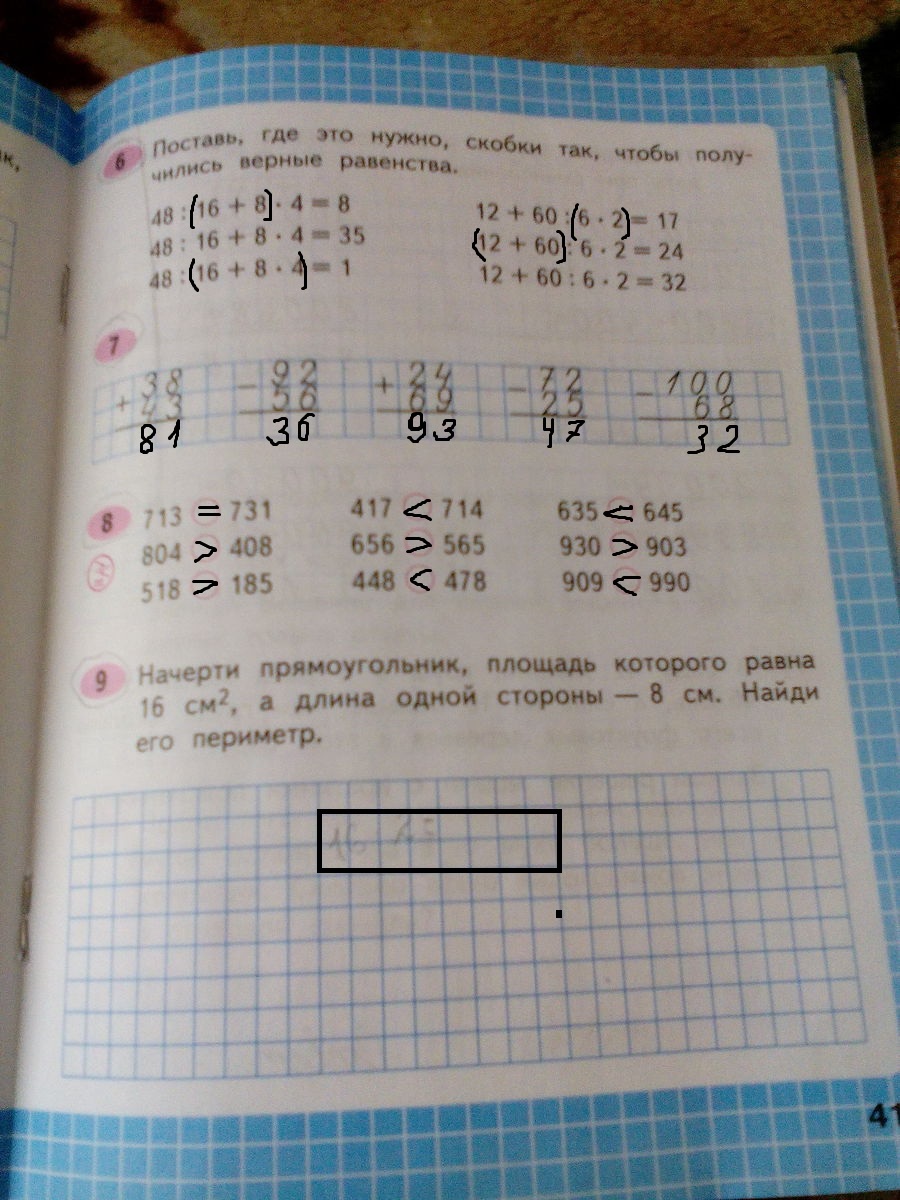 ак,
6 Поставь, где это нужно, скобки так, чтобы полу-
чились верные равенства.
48 : (16 + 8) · 4 = 8 12 + 60 : (6 · 2) = 17
48 : 16 + 8 · 4 = 35 (12 + 60) : 6 · 2 = 24
48 : (16 + 8 · 4) = 1 12 + 60 : 6 · 2 = 32
7
38 92 24 72 100
+ 43 − 56 + 69 − 25 − 68
81 36 93 47 32
8 713 = 731 417 < 714 635 < 645
804 > 408 656 > 565 930 > 903
518 > 185 448 < 478 909 < 990
9 Начерти прямоугольник, площадь которого равна
16 см², а длина одной стороны — 8 см. Найди
его периметр.
16
41